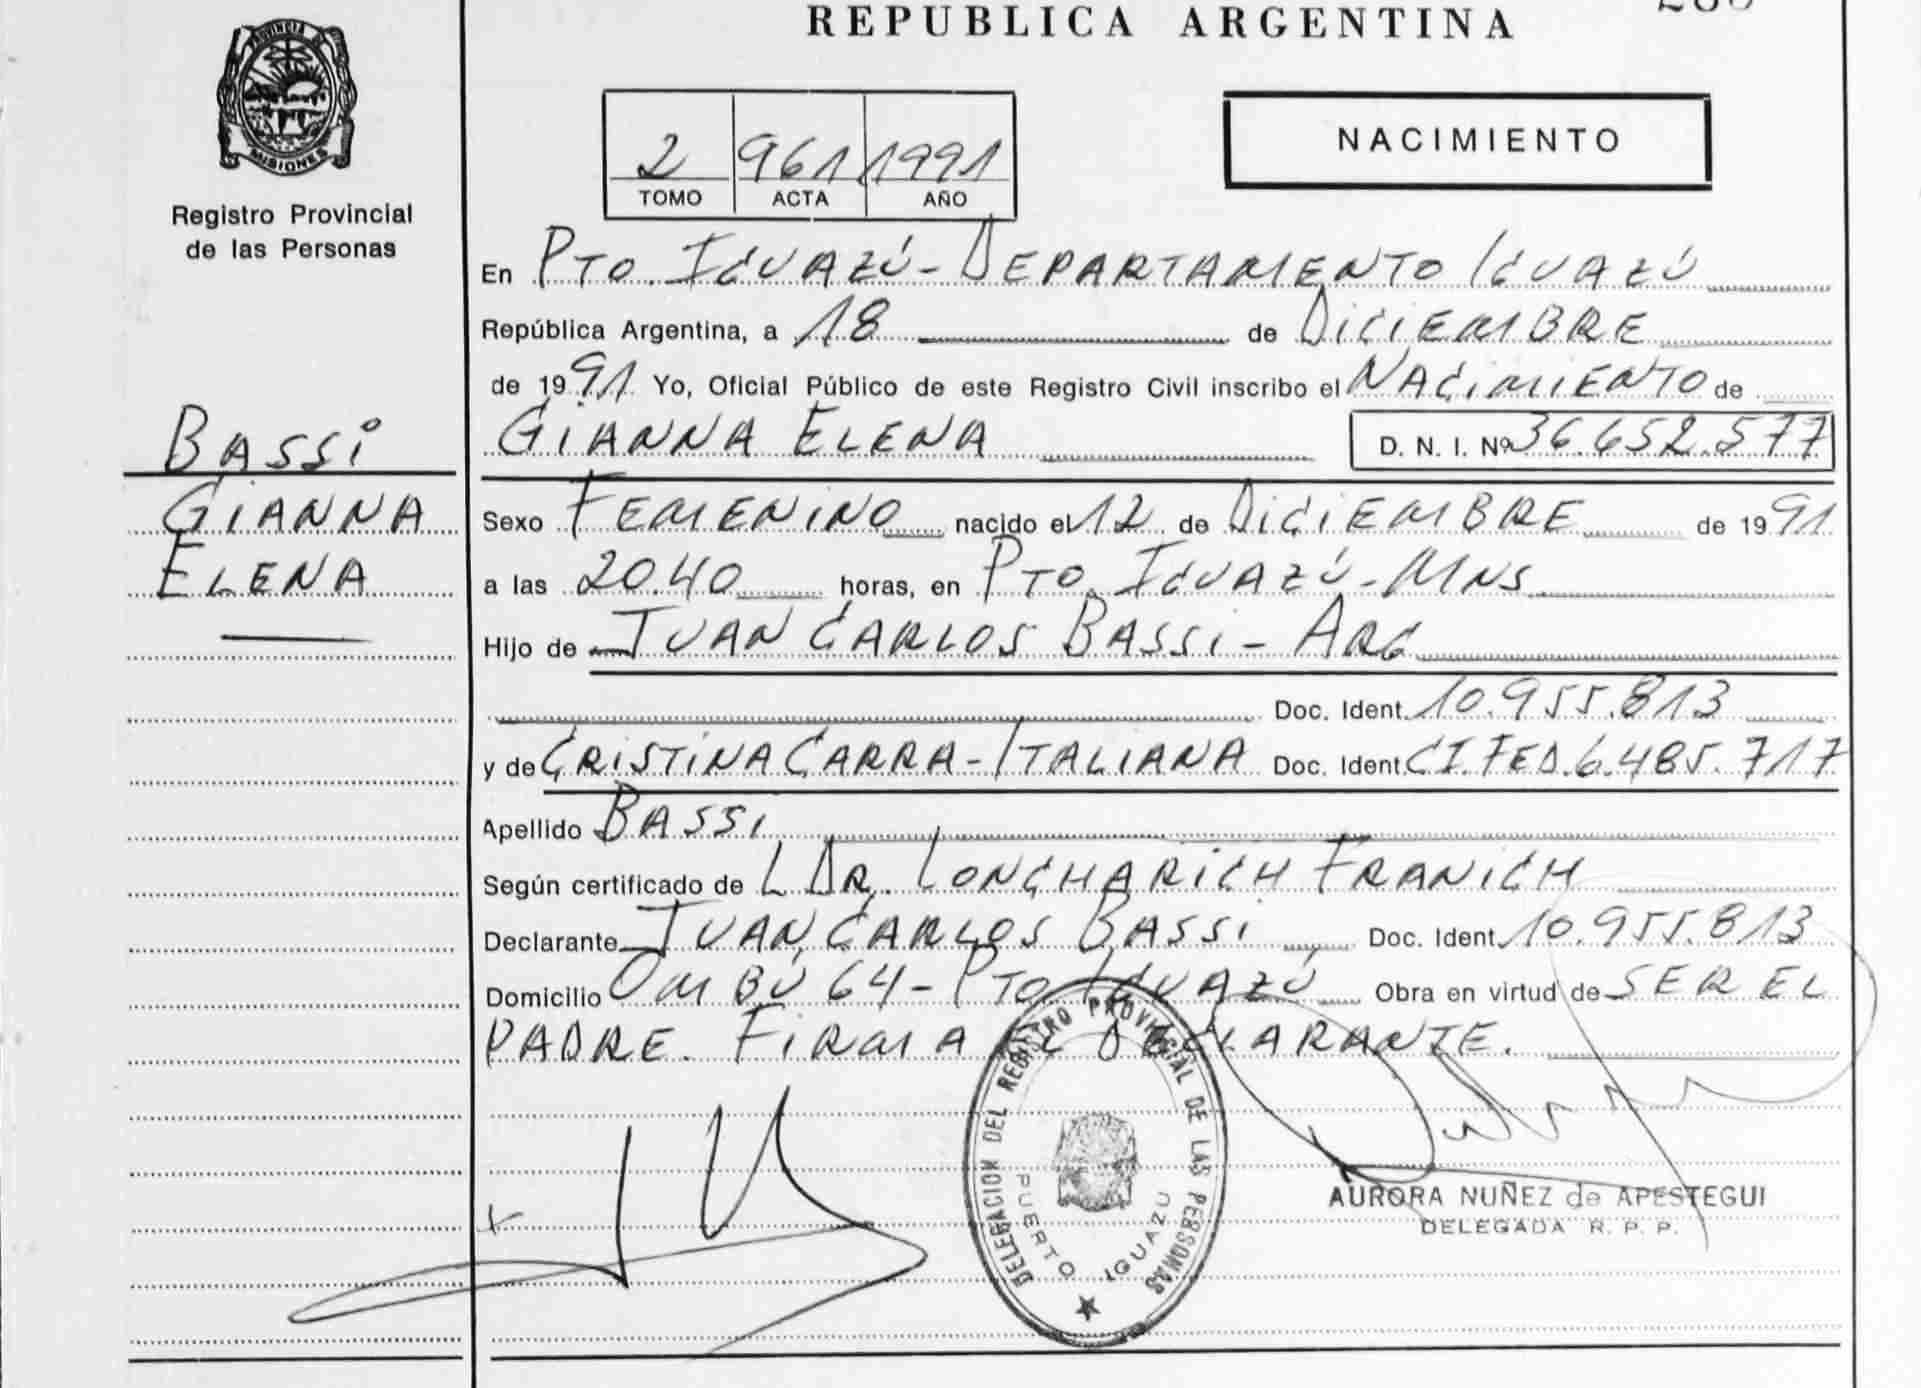 REPUBLICA ARGENTINA
PROVINCIA DE
MISIONES
Registro Provincial
de las Personas
NACIMIENTO
2 961 1991
TOMO ACTA AÑO
En PTO. IGUAZÚ - DEPARTAMENTO IGUAZÚ
República Argentina, a 18 de DICIEMBRE
de 1991 Yo, Oficial Público de este Registro Civil inscribo el NACIMIENTO de
BASSI
GIANNA ELENA D. N. I. Nº 36.652.577
GIANNA
Sexo FEMENINO nacido el 12 de DICIEMBRE de 1991
ELENA
a las 20.40 horas, en PTO. IGUAZÚ - MNS.
Hijo de JUAN CARLOS BASSI - ARG
Doc. Ident. 10.955.813
y de CRISTINA CARRA - ITALIANA Doc. Ident. CI.FED.6.485.717
Apellido BASSI
Según certificado de L DR. LONCHARICH FRANICH
Declarante JUAN CARLOS BASSI Doc. Ident. 10.955.813
Domicilio OMBÚ 64 - PTO IGUAZÚ Obra en virtud de SER EL
PADRE. FIRMA EL DECLARANTE.
DELEGACION DEL REGISTRO PROVINCIAL DE LAS PERSONAS
PUERTO IGUAZU
AURORA NUÑEZ de APESTEGUI
DELEGADA R. P. P.